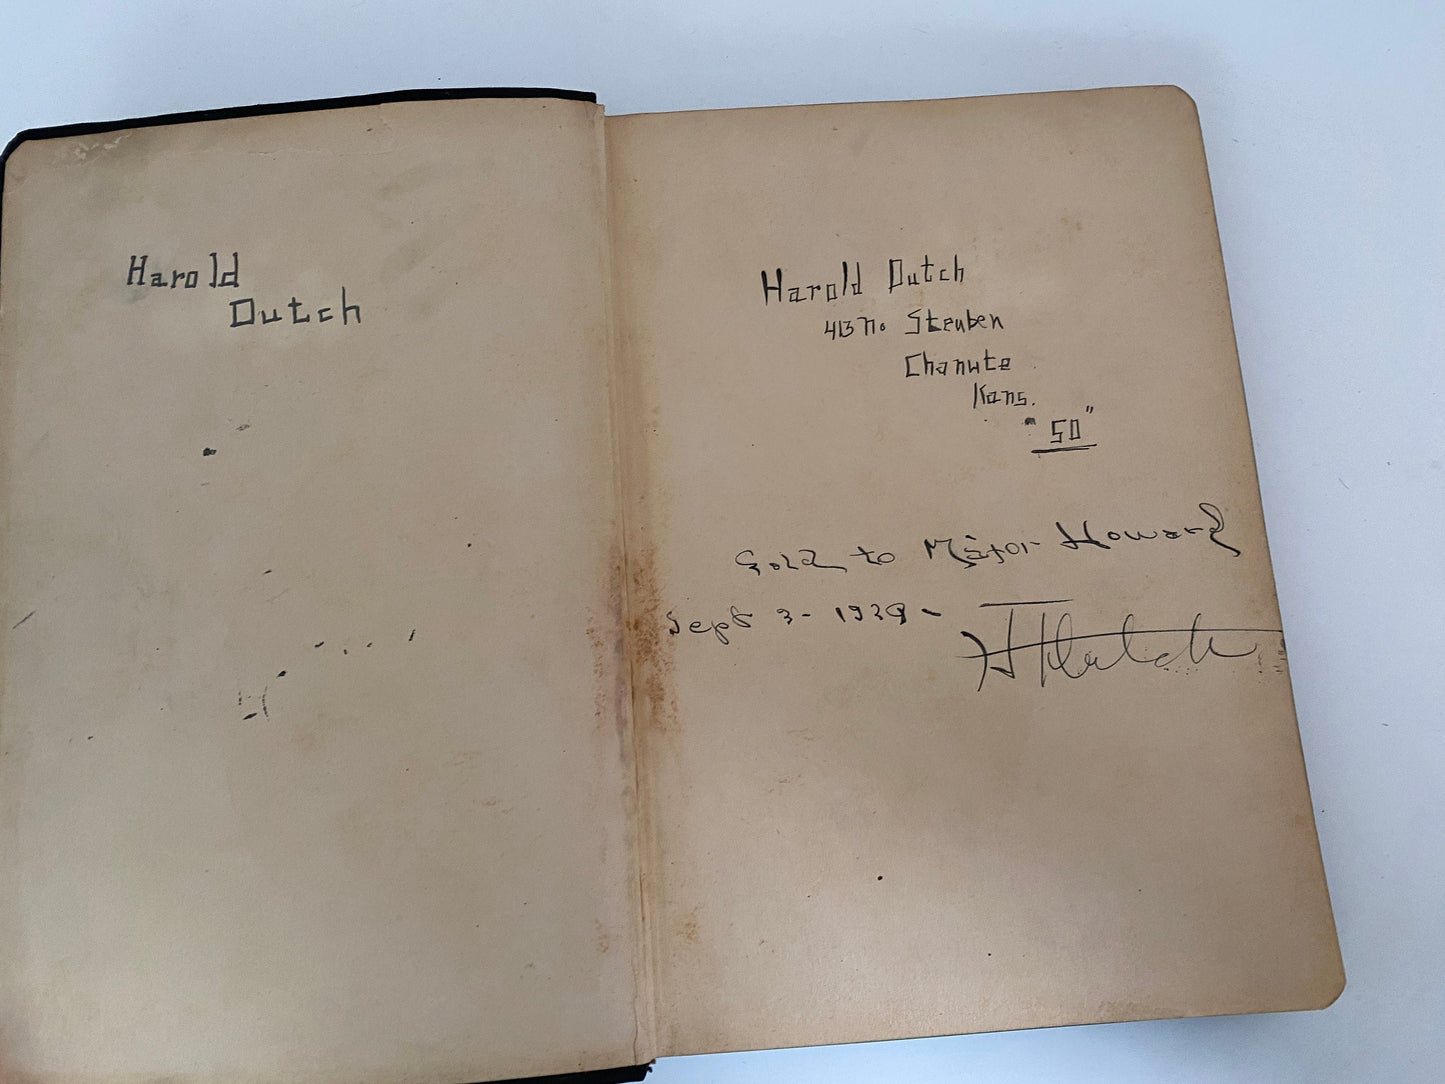 Harold
Dutch
Harold Dutch
413 No. Steuben
Chanute
Kans.
"50"
Sold to Major Howard
Sept 3 - 1939 -